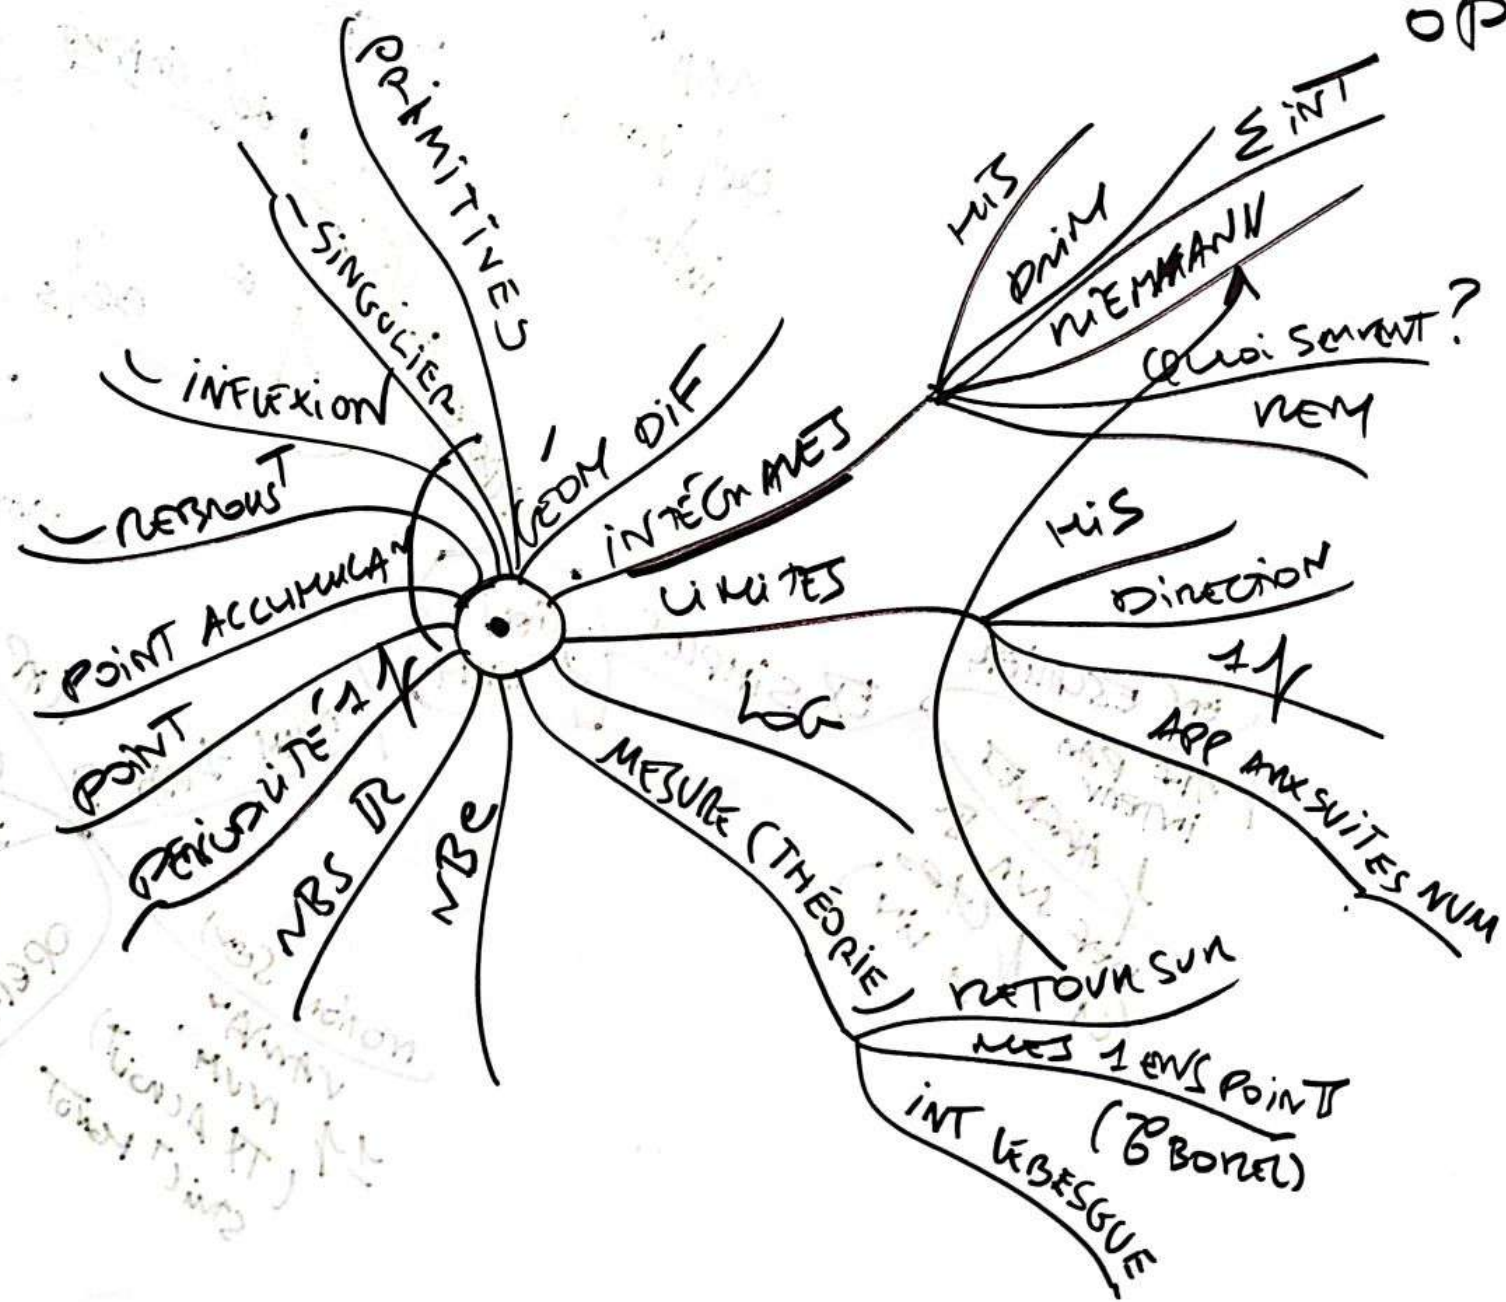 OP
PRIMITIVES
- SINGULIER
- INFLEXION
- REBROUST
POINT ACCUMULAN
POINT
PÉRIODICITÉ 1 f
NBS R
NB e
GÉOM DIF
INTÉGRALES
HIS
Σ INT
RIEMANN
QUOI SERVENT ?
REM
LIMITES
HIS
DIRECTION
1 f
APP AUX SUITES NUM
LOG
MESURE (THÉORIE)
RETOUR SUR
MES 1 ENS POINT
BOREL)
INT LEBESGUE